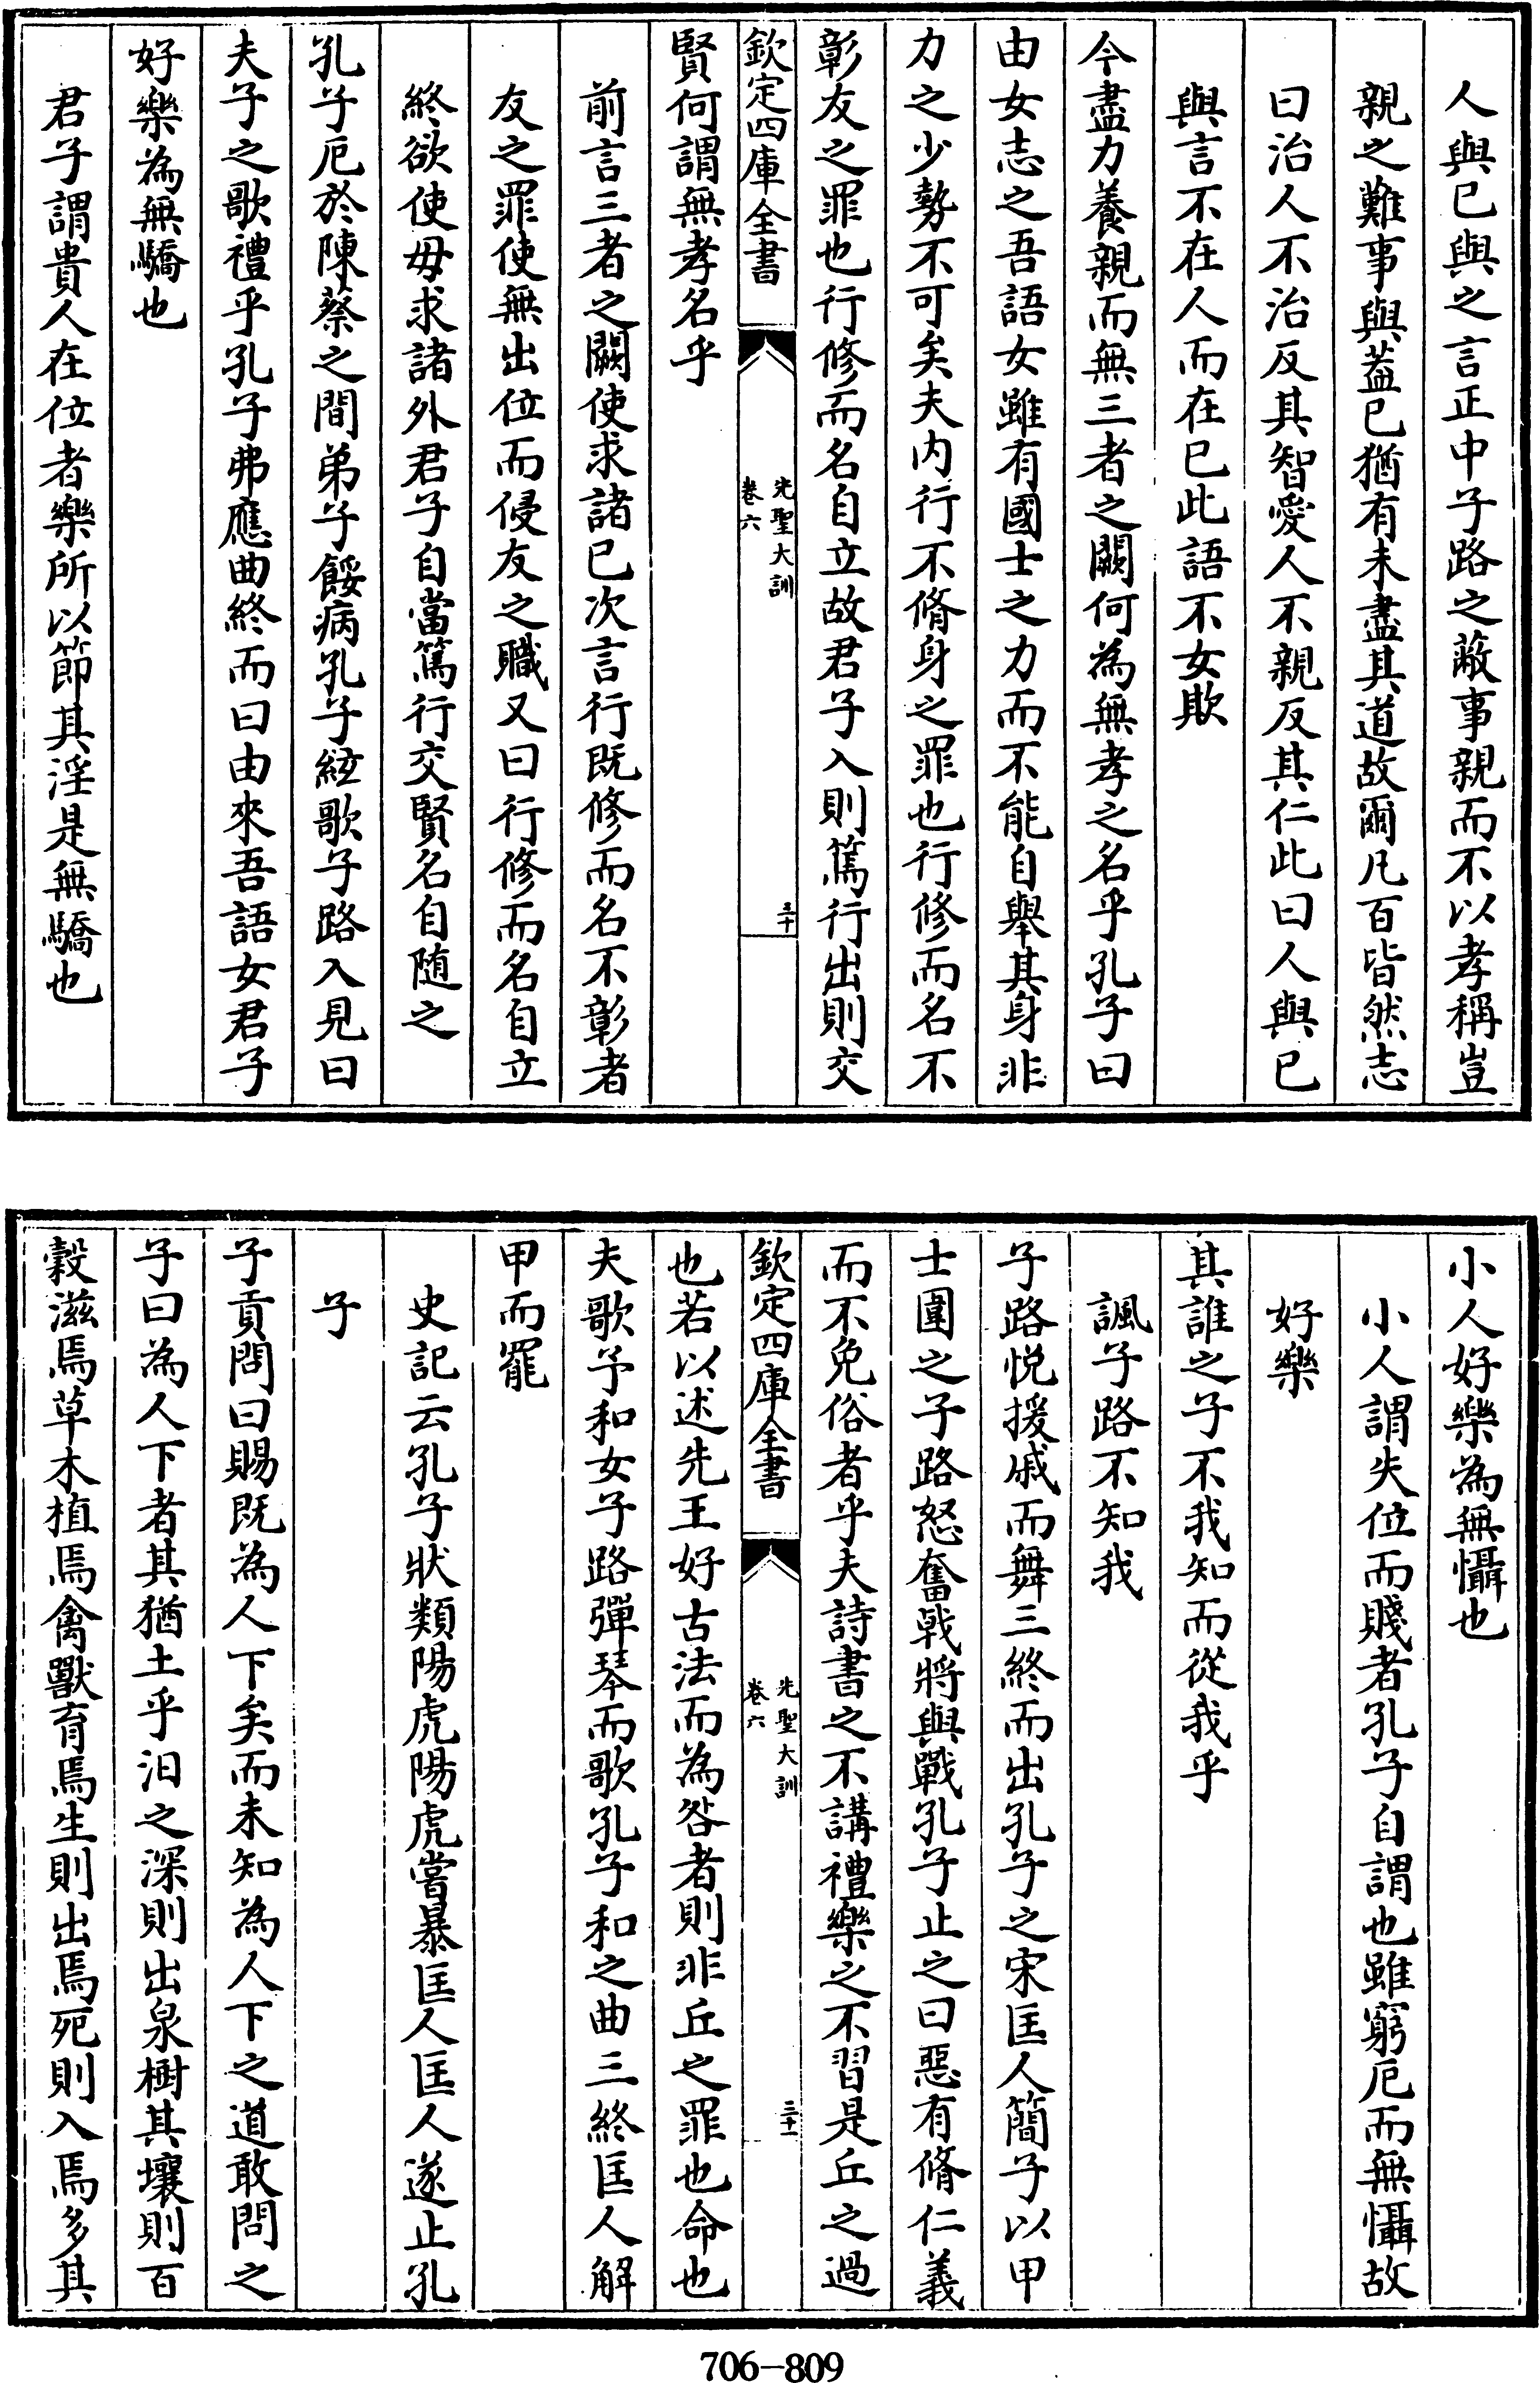 人與已與之言正中子路之蔽事親而不以孝稱豈
親之難事與葢已猶有未盡其道故爾凡百皆然志
曰治人不治反其智愛人不親反其仁此曰人與已
與言不在人而在已此語不女欺
今盡力養親而無三者之闕何為無孝之名乎孔子曰
由女志之吾語女雖有國士之力而不能自舉其身非
力之少勢不可矣夫内行不脩身之罪也行修而名不
彰友之罪也行修而名自立故君子入則篤行出則交
欽定四庫全書
先聖大訓
卷六
三十
賢何謂無孝名乎
前言三者之闕使求諸已次言行既修而名不彰者
友之罪使無出位而侵友之職又曰行修而名自立
終欲使毋求諸外君子自當篤行交賢名自随之
孔子厄於陳蔡之間弟子餒病孔子絃歌子路入見曰
夫子之歌禮乎孔子弗應曲終而曰由來吾語女君子
好樂為無驕也
君子謂貴人在位者樂所以節其淫是無驕也
小人好樂為無懾也
小人謂失位而賤者孔子自謂也雖窮厄而無懾故
好樂
其誰之子不我知而從我乎
諷子路不知我
子路悦援戚而舞三終而出孔子之宋匡人簡子以甲
士圍之子路怒奮戟將與戰孔子止之曰惡有脩仁義
而不免俗者乎夫詩書之不講禮樂之不習是丘之過
欽定四庫全書
先聖大訓
卷六
三十一
也若以述先王好古法而為咎者則非丘之罪也命也
夫歌予和女子路彈琴而歌孔子和之曲三終匡人解
甲而罷
史記云孔子狀類陽虎陽虎嘗暴匡人匡人遂止孔
子
子貢問曰賜既為人下矣而未知為人下之道敢問之
子曰為人下者其猶土乎汩之深則出泉樹其壤則百
穀滋焉草木植焉禽獸育焉生則出焉死則入焉多其
706-809